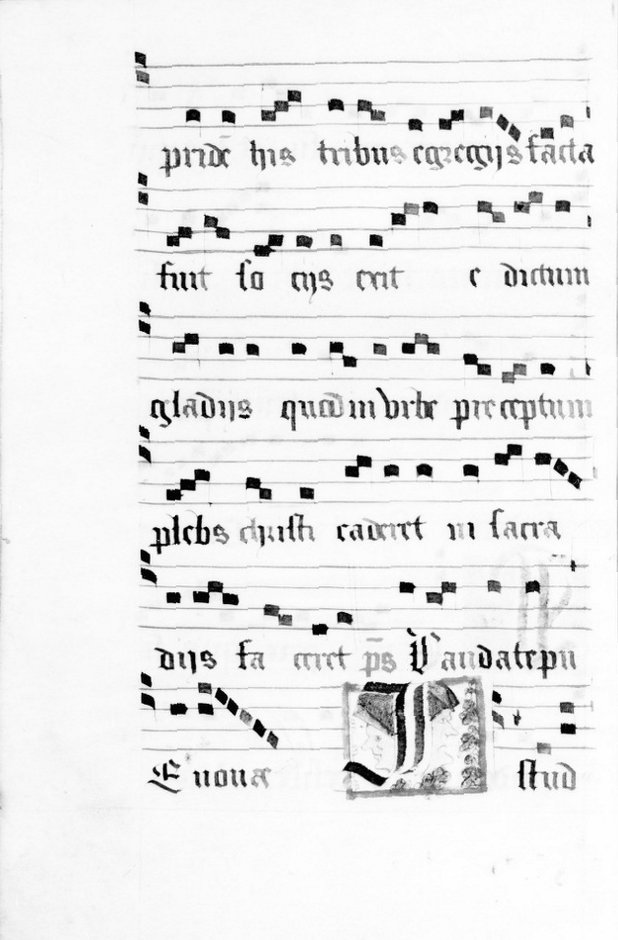 pridē his tribus egregijs facta
fuit so cijs exit e dictum
gladijs quod in vrbe preceptum
plebs christi caderet ni sacra
dijs fa ceret p̄s Laudate pu
E uouae I stud